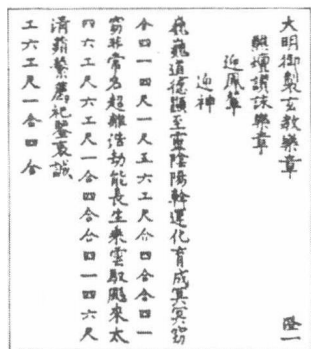 大明御製玄教樂章 隆一
醮壇讚詠樂章
迎鳳輦
迎神
巍巍道德顯至靈陰陽斡運化育成冥冥窈
合四一四尺一尺五六工尺合四合合四一
窈非常名超離浩劫能長生乘雲馭飈來太
四六工六工尺一合四合合四一四六尺
清蘋蘩薦祀鑒衷誠
工六工尺一合四合